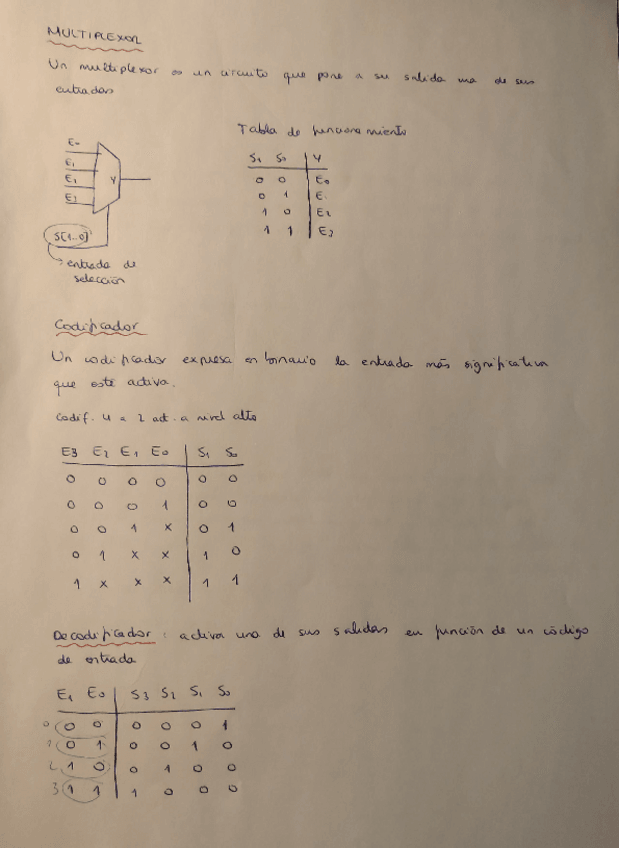 MULTIPLEXOR
Un multiplexor es un circuito que pone a su salida una de sus
entradas
Tabla de funcionamiento
E0
E1
E1
E3
Y
S[1..0]
entrada de
selección
S1 S0 | Y
0 0 | E0
0 1 | E1
1 0 | E2
1 1 | E3
Codificador
Un codificador expresa en binario la entrada más significativa
que esté activa.
Codif. 4 a 2 act. a nivel alto
E3 E2 E1 E0 | S1 S0
0 0 0 0 | 0 0
0 0 0 1 | 0 0
0 0 1 x | 0 1
0 1 x x | 1 0
1 x x x | 1 1
Decodificador : activa una de sus salidas en función de un código
de entrada
E1 E0 | S3 S2 S1 S0
0 0 0 | 0 0 0 1
1 0 1 | 0 0 1 0
2 1 0 | 0 1 0 0
3 1 1 | 1 0 0 0